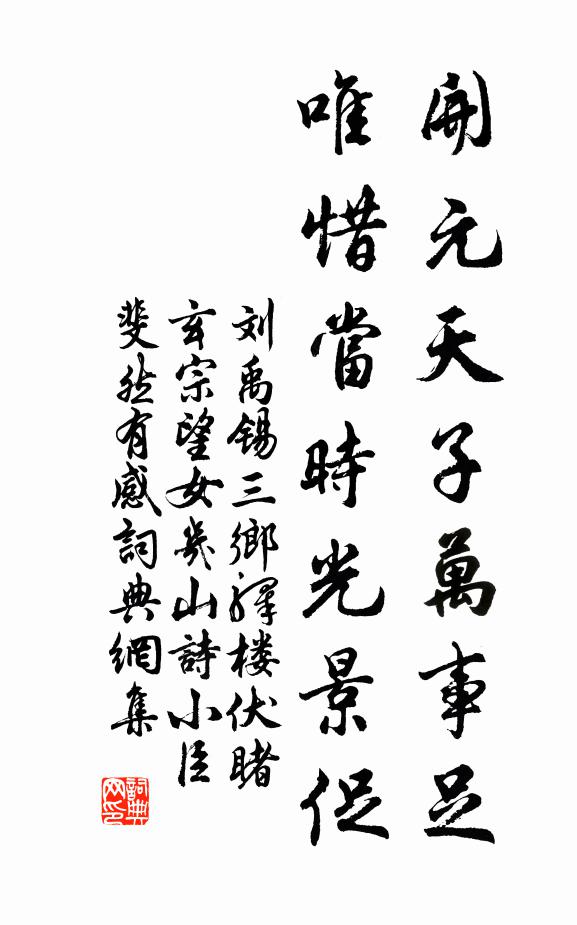 開元天子萬事足
唯惜當時光景促
刘禹锡三鄉驛楼伏睹
玄宗望女幾山詩小臣
斐然有感詞典網集
詞典
网印